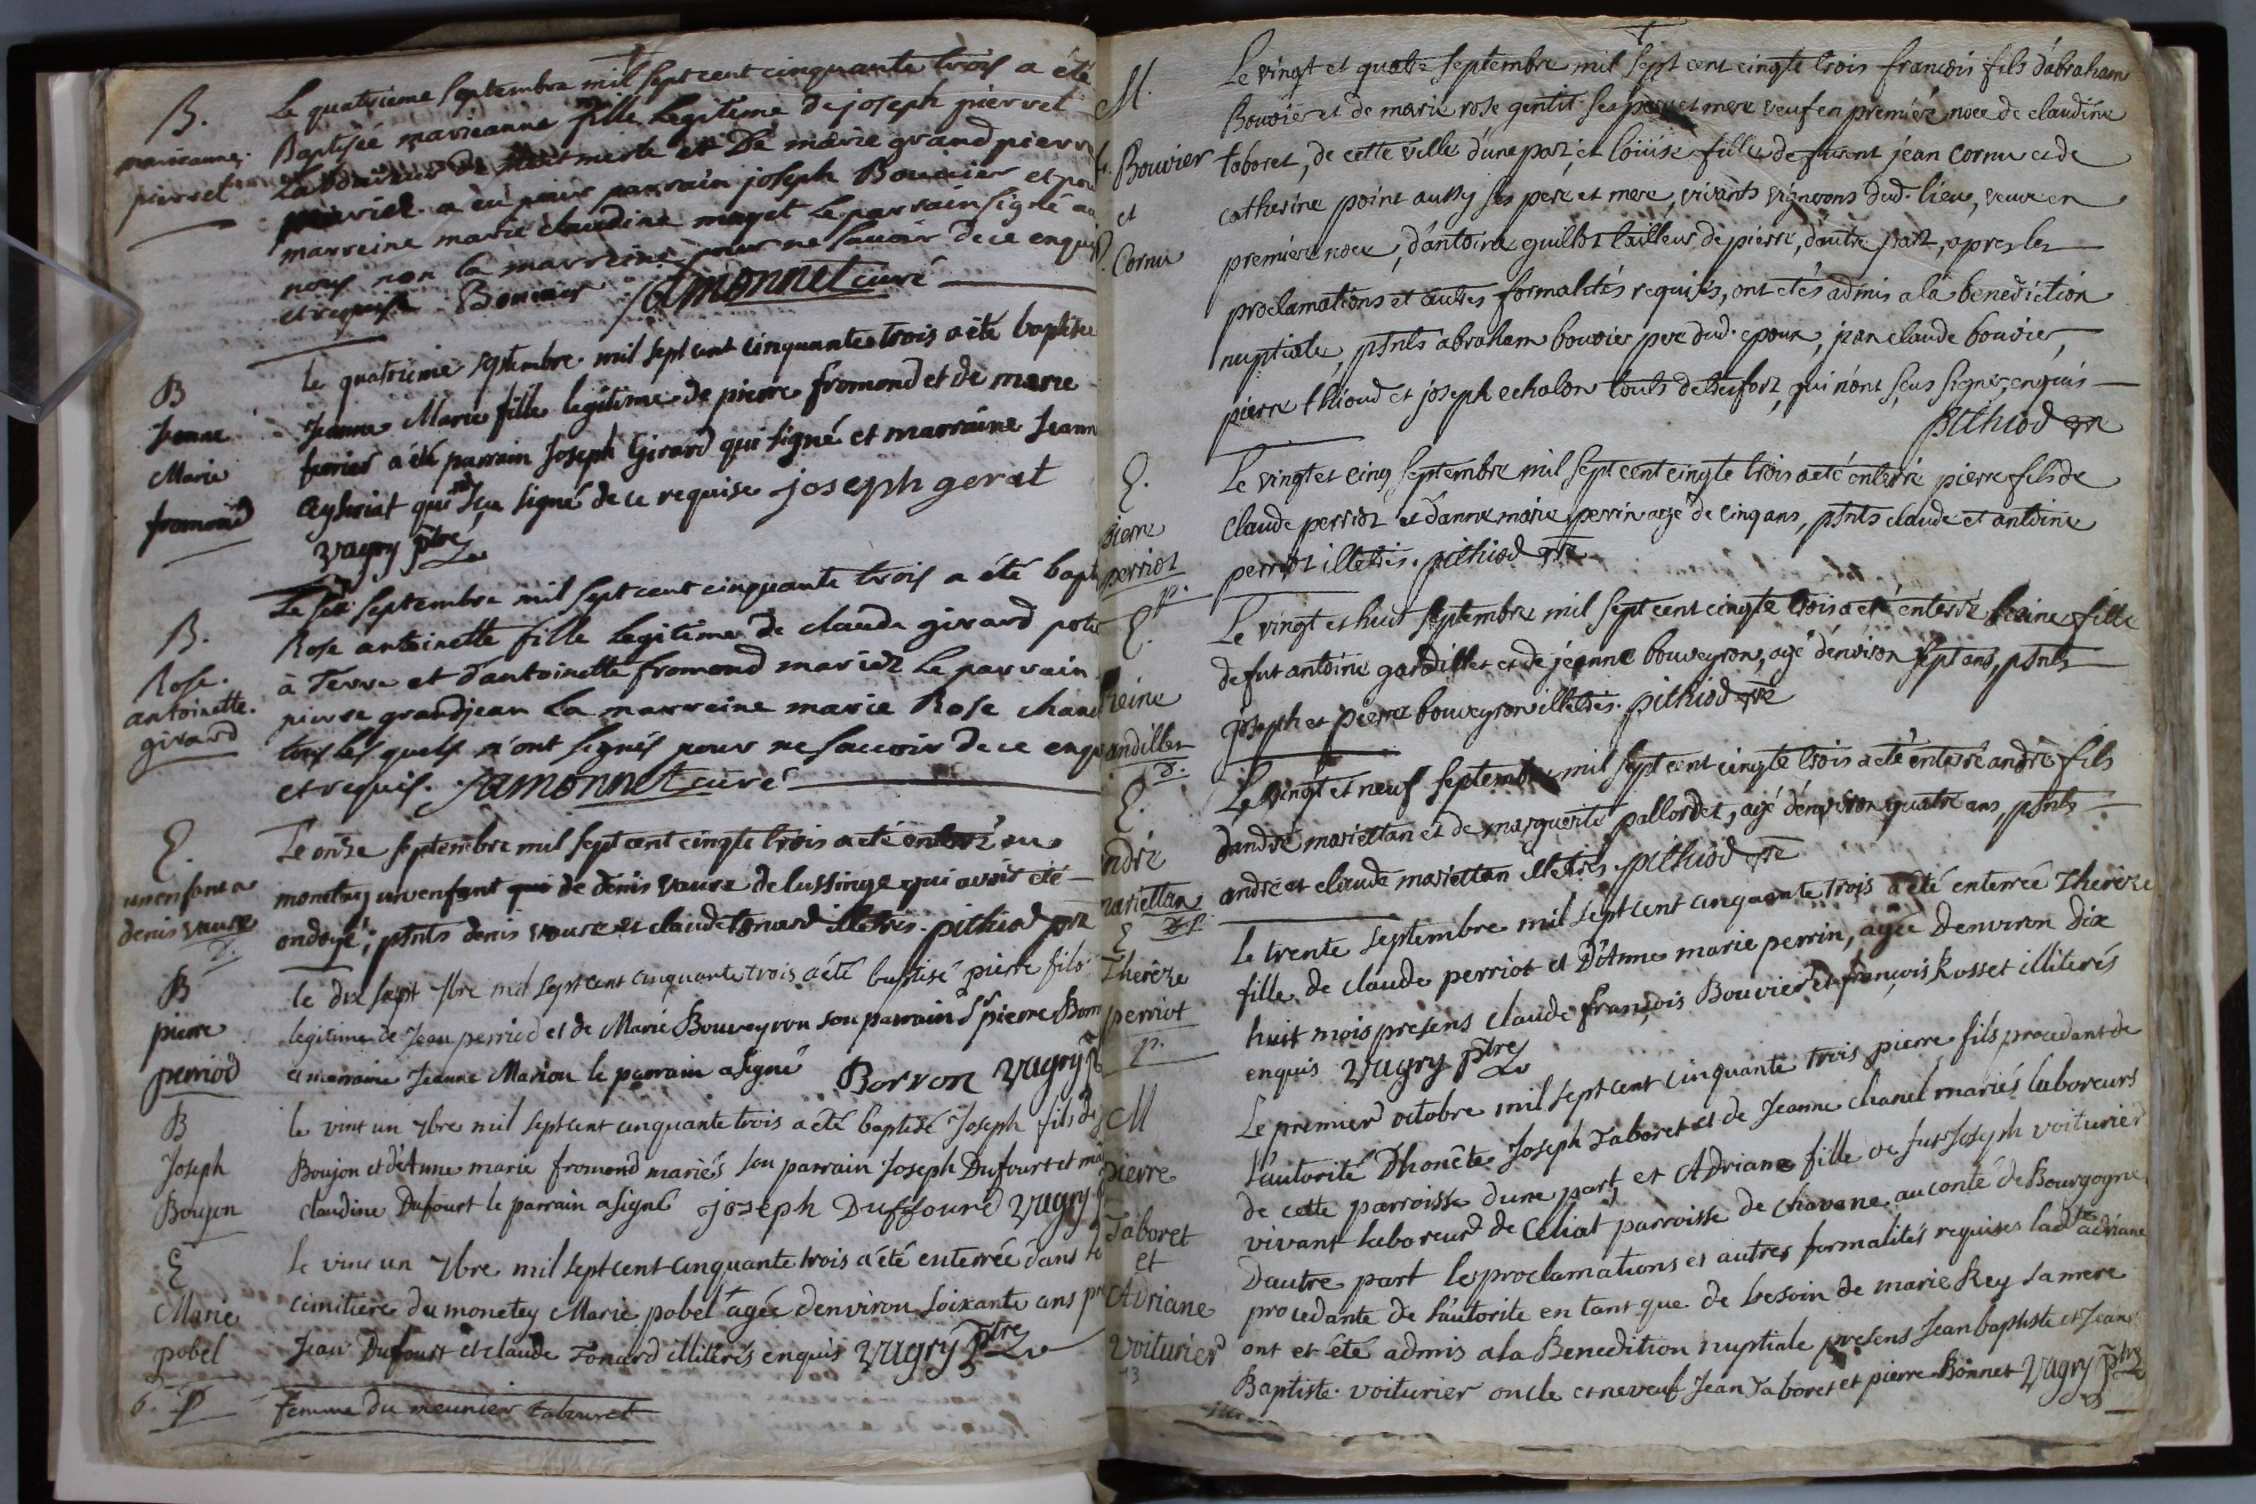 B.
marieanne.
pierret
Le quatrieme Septembre mil sept cent cinquante trois a été
Baptisée marieanne fille Legitime de joseph pierret
Laboureur de et De marie grand pierre
a eu pour parrain joseph Bouvier et pou
marreine marie claudine mayet Le parrain signé au
nous non la marreine pour ne sauoir de ce enquis
et requise Bouvier Jamonnet curé
B
Jeanne
Marie
fromond
le quatrieme septembre mil sept cent cinquante trois a été baptisée
Jeanne Marie fille legitime de pierre fromond et de marie
furrier a été parrain Joseph Girard qui signé et marraine Jeann
qui n'a signé de ce requise joseph gerat
Vugry ptre
B.
Rose.
antoinette.
girard
Le Septembre mil sept cent cinquante trois a été bapt
Rose antoinette fille Legitime de claude girard potie
à Terre et d'antoinette fromond mariez Le parrain
pierre grandjean La marreine marie Rose chane
tous les quels n'ont signés pour ne Sauoir de ce enqu
et requis. Jamonnet curé
E.
un enfant a
denis vaure
d.
Le onze septembre mil sept cent cinqte trois a eté enterré au
monetay un enfant qui de denis vaure de lussinge qui avoit eté
ondoyé, psnts denis vaure et claude tonard illetrés. pithiod ptre
B
pierre
perriod
le dix sept 7bre mil sept cent cinquante trois a été baptisé pierre fils
legitime de Jean perriod et de Marie Bouveyron son parrain Sr pierre Borr
et marraine Jeanne Mariou le parrain a signé Borron Vugry p
B
Joseph
Boujon
le vint un 7bre mil sept cent cinquante trois a été baptisé Joseph fils de
Boujon et d'Anne marie fromond mariés son parrain Joseph Dufourt et ma
claudine Dufourt le parrain a signé joseph Duffourd Vugry
E
Marie
pobel
6. P
le vint un 7bre mil sept cent cinquante trois a été enterrée dans le
cimitiere du monetey Marie pobel agée d'environ soixante ans pr
Jean Dufourt et claude Tonard illiterés enquis Vugry Ptre
femme du meunier tabouret
M.
f. Bouvier
et
Cornu
Le vingt et quatre septembre mil sept cent cinqte trois francois fils d'abraham
Bouvier et de marie rose gentit ses pere et mere veuf en premiére noce de claudine
taboret, de cette ville d'une part, et loüise fille de furent jean cornu et de
catherine point aussy ses pere et mere, vivants vignerons dud. lieu, veuve en
premiére noce, d'antoine guillot tailleur de pierre, d'autre part, apres les
proclamations et autres formalités requises, ont etés admis a la benediction
nuptiale, psnts abraham bouvier pere dud. epoux, jean claude bouvier,
pierre thioud et joseph echalon touts de beufort, qui n'ont sçus signer, enquis
pithiod ptre
E.
pierre
perriot
p.
Le vingt et cinq septembre mil sept cent cinqte trois a eté enterré pierre fils de
claude perriot et d'anne marie perrin agé de cinq ans, psnts claude et antoine
perriot illetrés. pithiod ptre
E.
Reine
andillet
d.
Le vingt et huit septembre mil sept cent cinqte trois a eté enterré Reine fille
de fut antoine gardillet et de jeanne bouveyron, agé d'environ sept ans, psnts
joseph et pierre bouveyron illetrés. pithiod ptre
E.
ndré
mariettan
d.p.
Le vingt et neuf septembre mil sept cent cinqte trois a eté enterré andré fils
d'andré mariettan et de marguerite pallordet, agé d'environ quatre ans, psnts
andré et claude mariettan illetrés. pithiod ptre
E
Thereze
perriot
p.
Le trente septembre mil sept cent cinquante trois a été enterrée Thereze
fille de claude perriot et D'Anne marie perrin, agée Denviron dix
huit mois presens claude françois Bouvier et françois Rosset illiterés
enquis Vugry Ptre
M
pierre
Taboret
et
Adriane
Voiturier
Le premier octobre mil sept cent cinquante trois pierre fils procedant de
l'autorité Dhonête Joseph Taboret et de Jeanne chanel mariés laboreurs
de cette parroisse dune part, et Adriane fille de fut Joseph voiturier
vivant laboreur de Celiat parroisse de Chavane au conté de Bourgogne
Dautre part les proclamations et autres formalités requises lad te adriane
procedante de l'autorite en tant que de besoin de marie Rey sa mere
ont et été admis a la Benedition nuptiale presens Jean baptiste et Jean
Baptiste voiturier oncle et neveuf Jean Taboret et pierre Bonnet Vugry Ptre